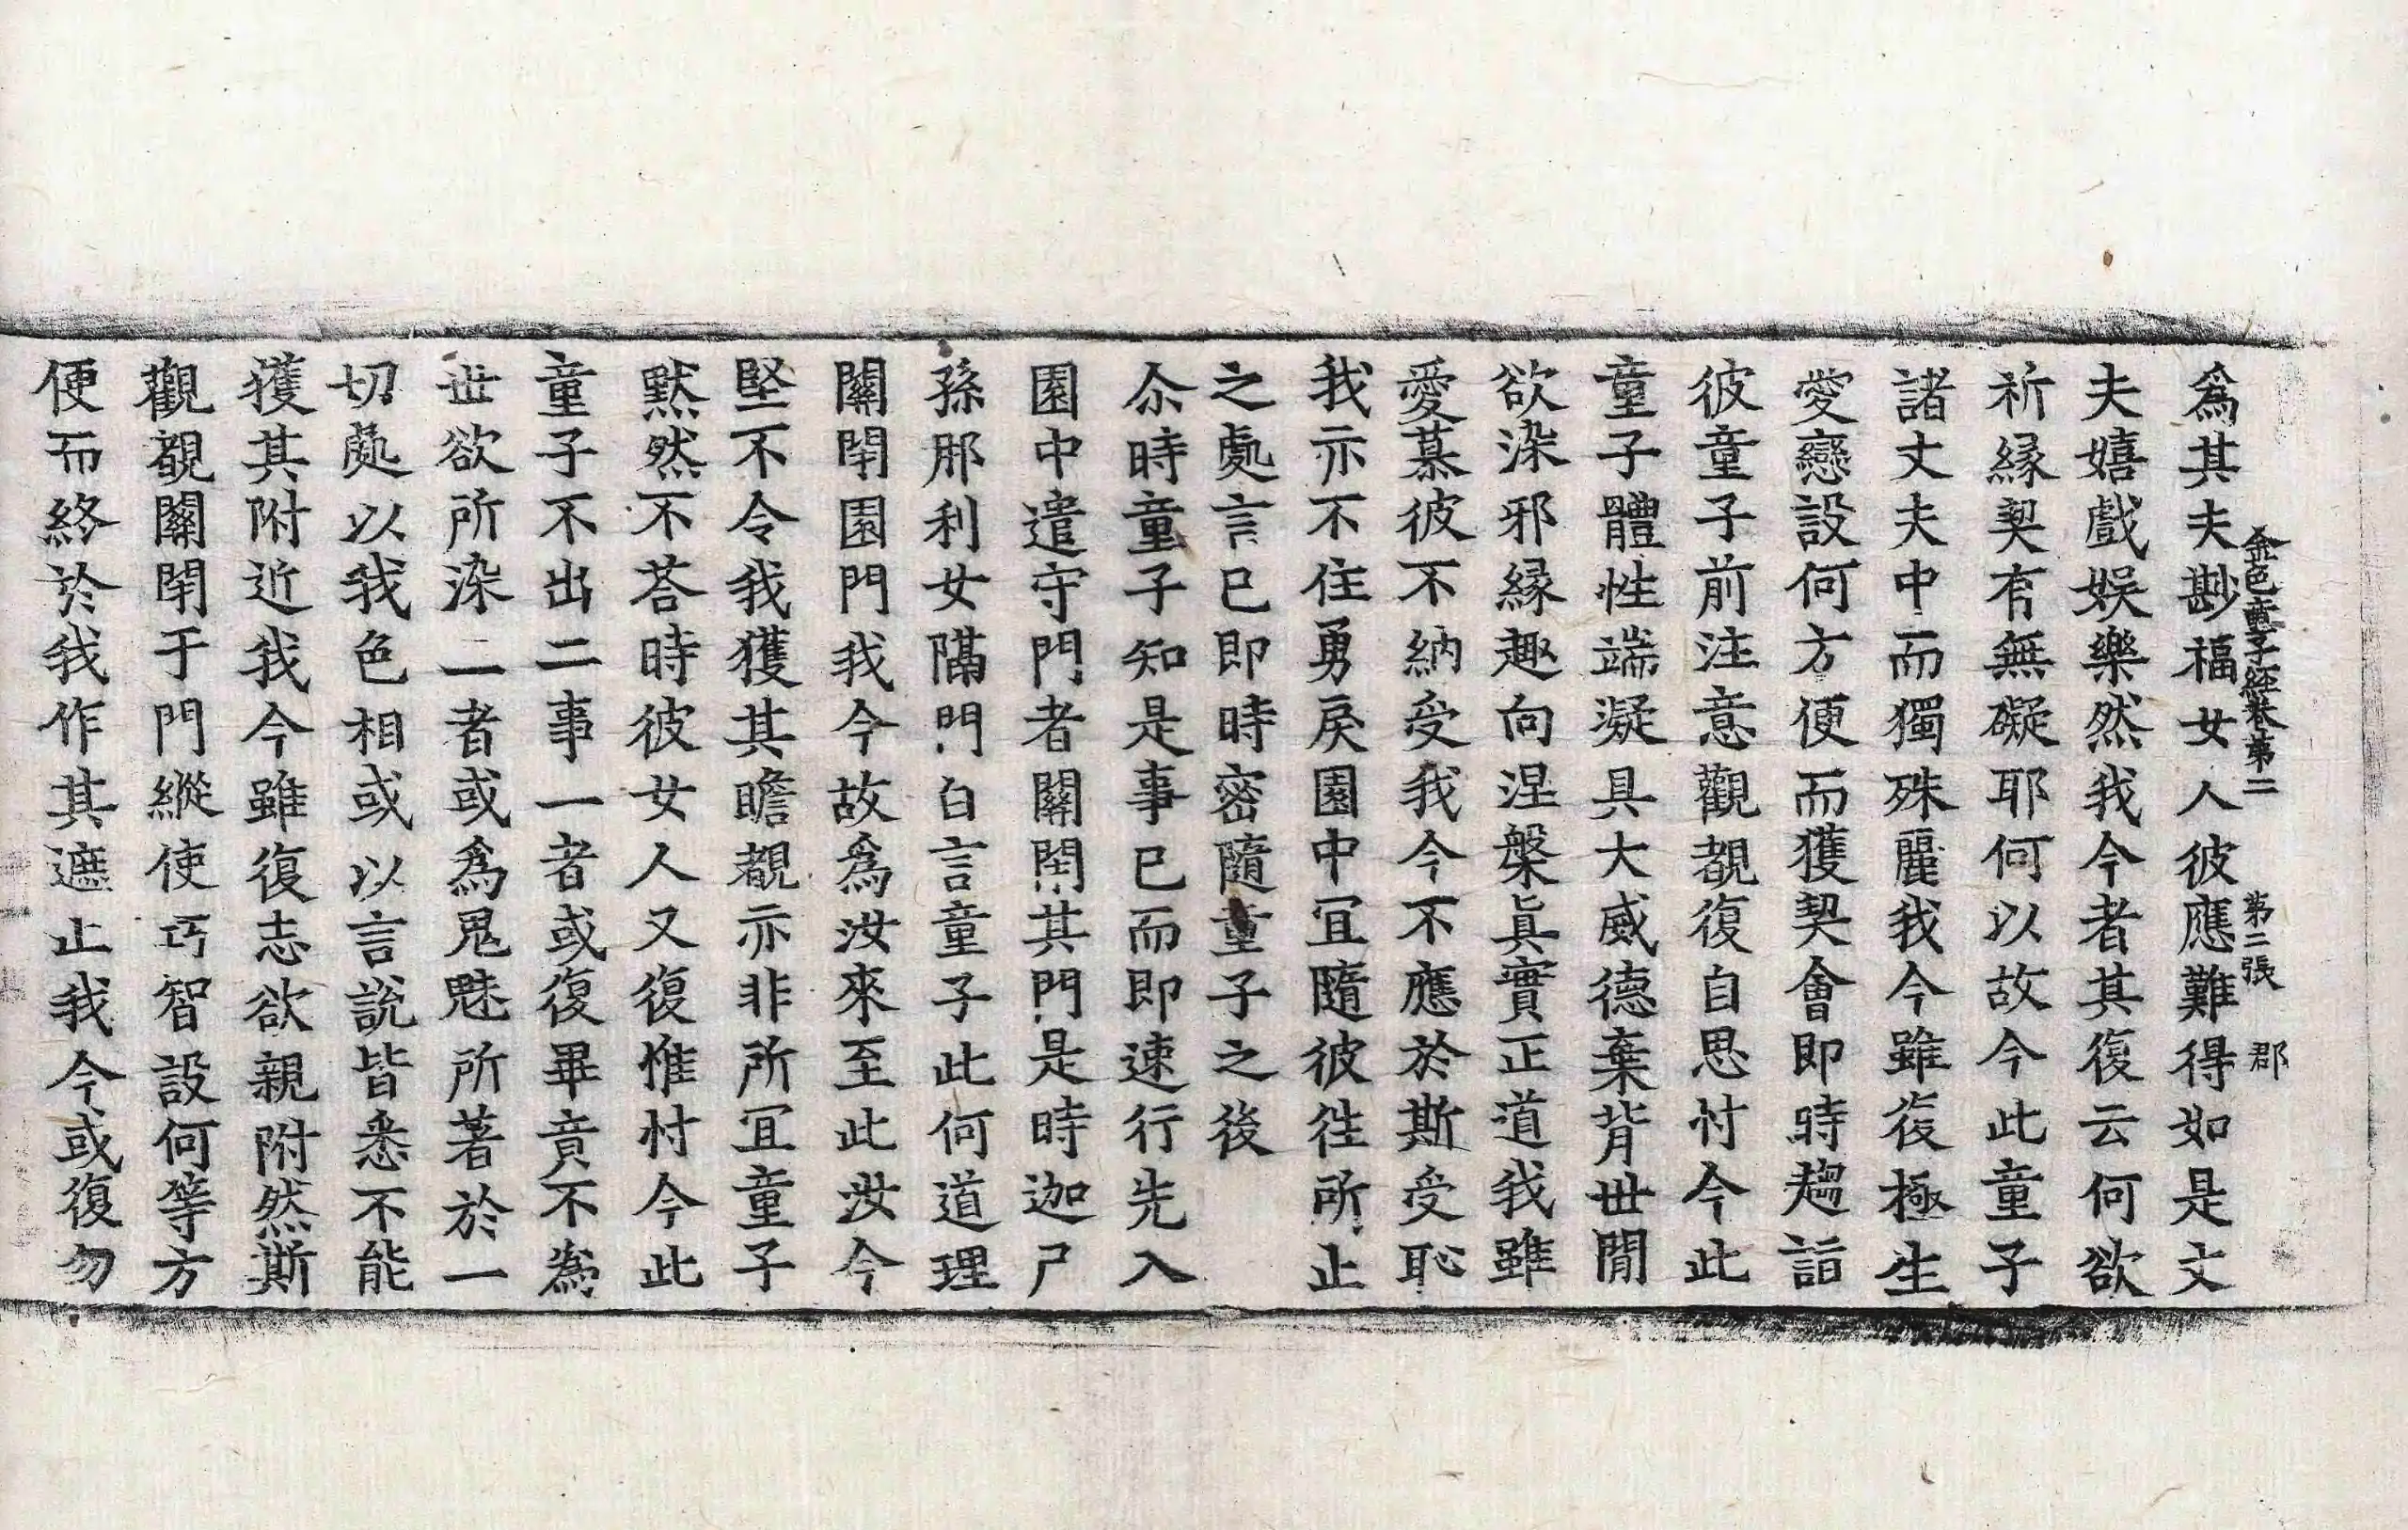 金色童子経巻第二 第二張 郡
爲其夫尠福女人彼應難得如是丈
夫嬉戲娛樂然我今者其復云何欲
祈縁契有無礙耶何以故今此童子
諸丈夫中而獨殊麗我今雖復極生
愛戀設何方便而獲契會即時趨詣
彼童子前注意觀覩復自思忖今此
童子體性端凝具大威德棄背世間
欲染邪縁趣向涅槃眞實正道我雖
愛慕彼不納受我今不應於斯受恥
我亦不住勇戾園中宜隨彼往所止
之處言已即時密隨童子之後
尒時童子知是事已而即速行先入
園中遣守門者關閉其門是時迦尸
孫那利女隔門白言童子此何道理
關閉園門我今故爲汝來至此汝今
堅不令我獲其瞻覩亦非所宜童子
默然不荅時彼女人又復惟忖今此
童子不出二事一者或復畢竟不爲
世欲所染二者或爲鬼魅所著於一
切處以我色相或以言說皆悉不能
獲其附近我今雖復志欲親附然斯
觀覩關閉于門縱使巧智設何等方
便而終於我作其遮止我今或復勿